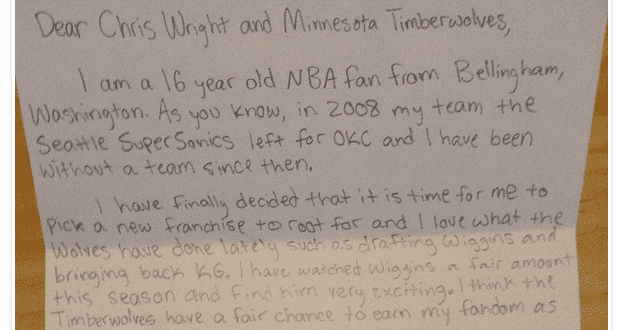 Dear Chris Wright and Minnesota Timberwolves,
I am a 16 year old NBA fan from Bellingham,
Washington. As you know, in 2008 my team the
Seattle SuperSonics left for OKC and I have been
without a team since then.
I have finally decided that it is time for me to
pick a new franchise to root for, and I love what the
Wolves have done lately such as drafting Wiggins and
bringing back KG. I have watched Wiggins a fair amount
this season and find him very exciting. I think the
Timberwolves have a fair chance to earn my fandom as